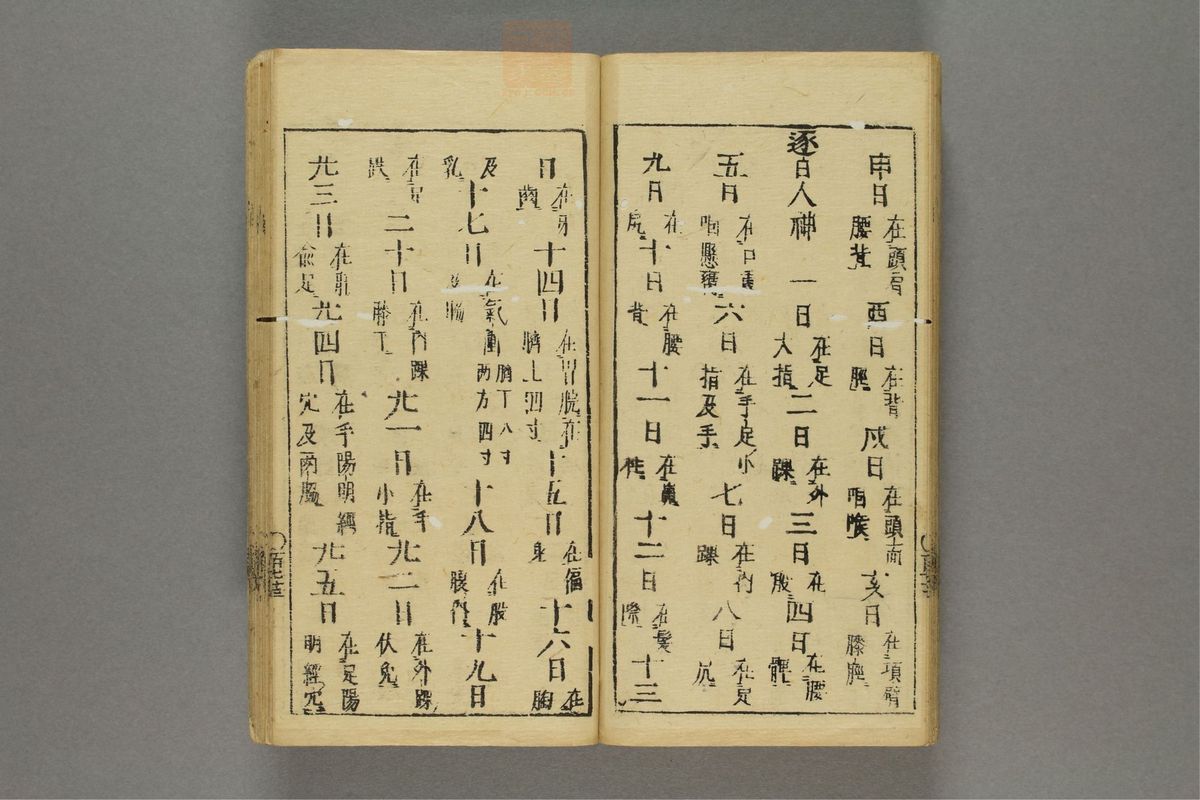 申日在頭肩腰背酉日在背脛戌日在頭面咽喉亥日在項臂膝脛
逐日人神一日在足大指二日在外踝三日在股四日在腰髀
五日在口舌咽懸雍六日在手足小指及手七日在內踝八日在足尻
九日在尻十日在腰背十一日在鼻柱十二日在髮際十三
日在牙齒十四日在胃脘在臍上四寸十五日在徧身十六日在胸
及乳十七日在氣衝臍下八寸兩方四寸十八日在股腹內十九日
在足趺二十日在內踝膝下廿一日在手小指廿二日在外踝伏兔
廿三日在肝俞足廿四日在手陽明經穴及兩脇廿五日在足陽明經穴